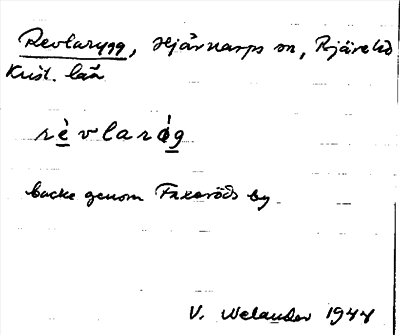 Revlarygg, Hjärnarps sn, Bjäre hd
Krist. län
rèvlaróg
backe genom Faxeröds by
V. Welander 1944